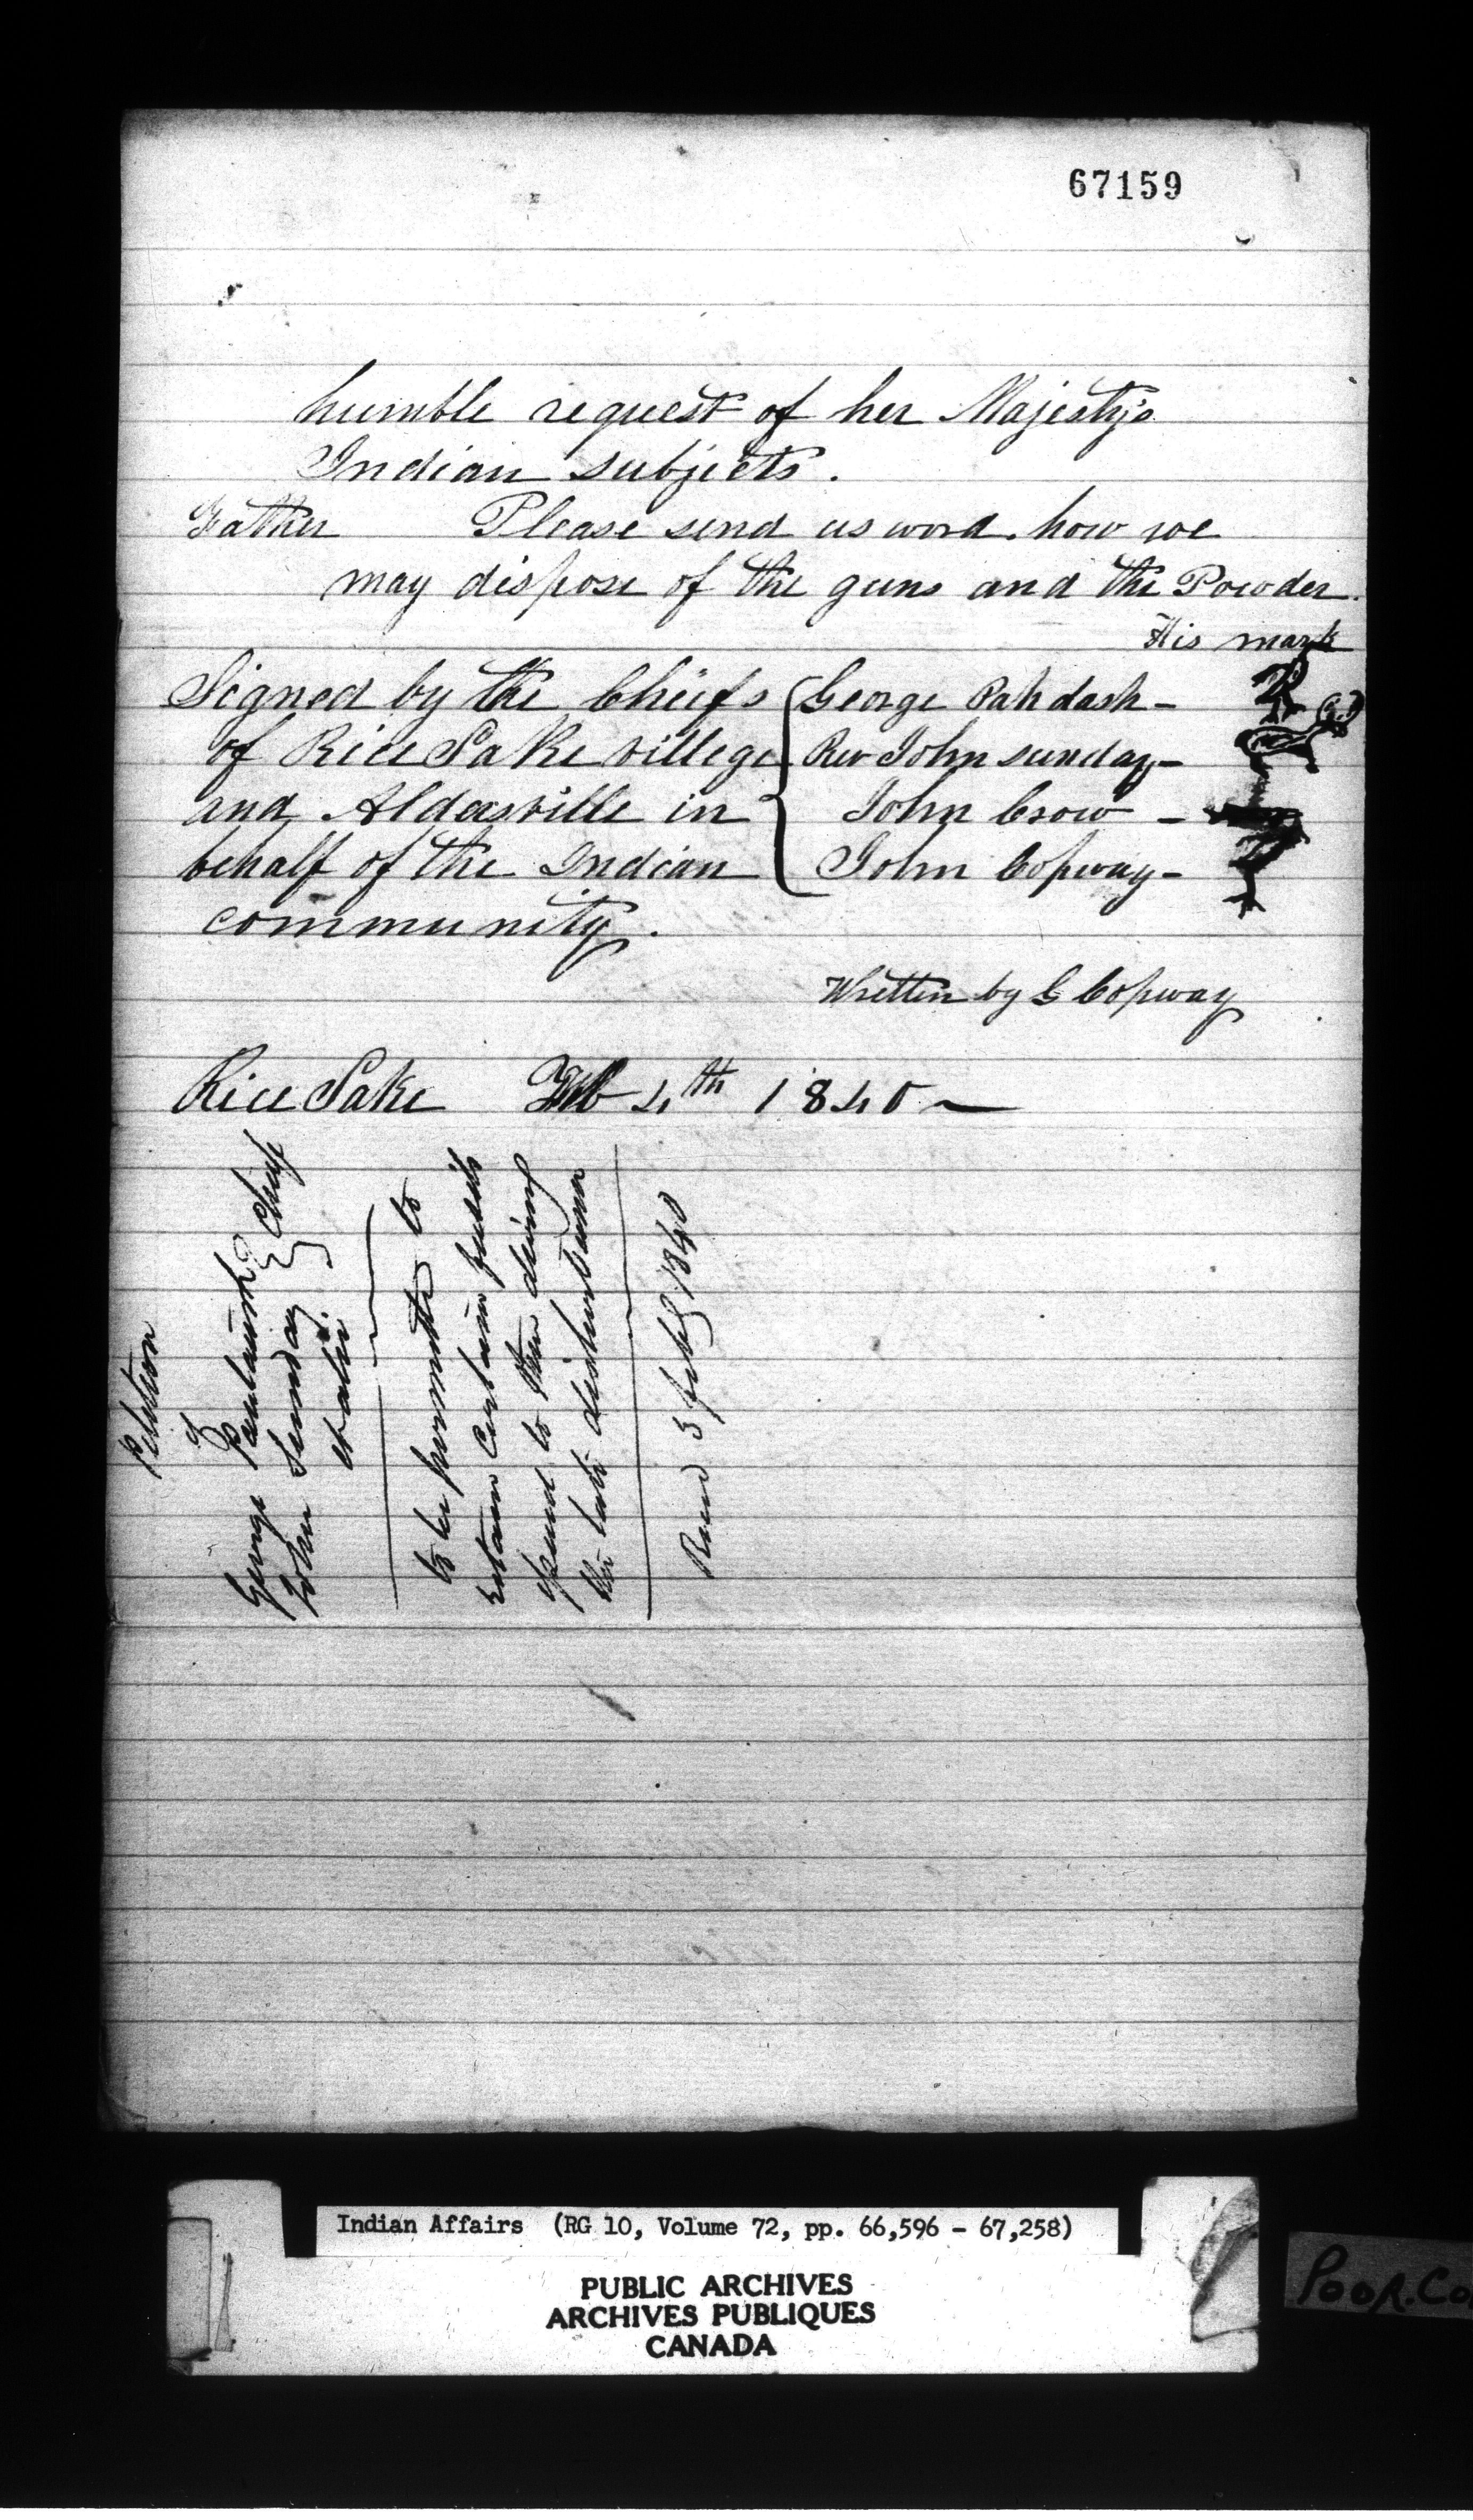 67159
humble request of her Majesty's
Indian subjects.
Father Please send us word. how we
may dispose of the guns and the Powder.
His mark
Signed by the Chiefs
of Rice Lake villege
and Aldersville in
behalf of the Indian
community.
George Pahdash -
Rev John sunday -
John Crow -
John Copway -
Written by G Copway
Rice Lake Feb 4th 1840
Petition
of
George Paudaush
John Sunday
et alii.
Chiefs
to be permitted to
retain certain fusils
issued to them during
the late disturbances
Recd 5 feby 1840
Indian Affairs (RG 10, Volume 72, pp. 66,596 - 67,258)
PUBLIC ARCHIVES
ARCHIVES PUBLIQUES
CANADA
POOR.CO